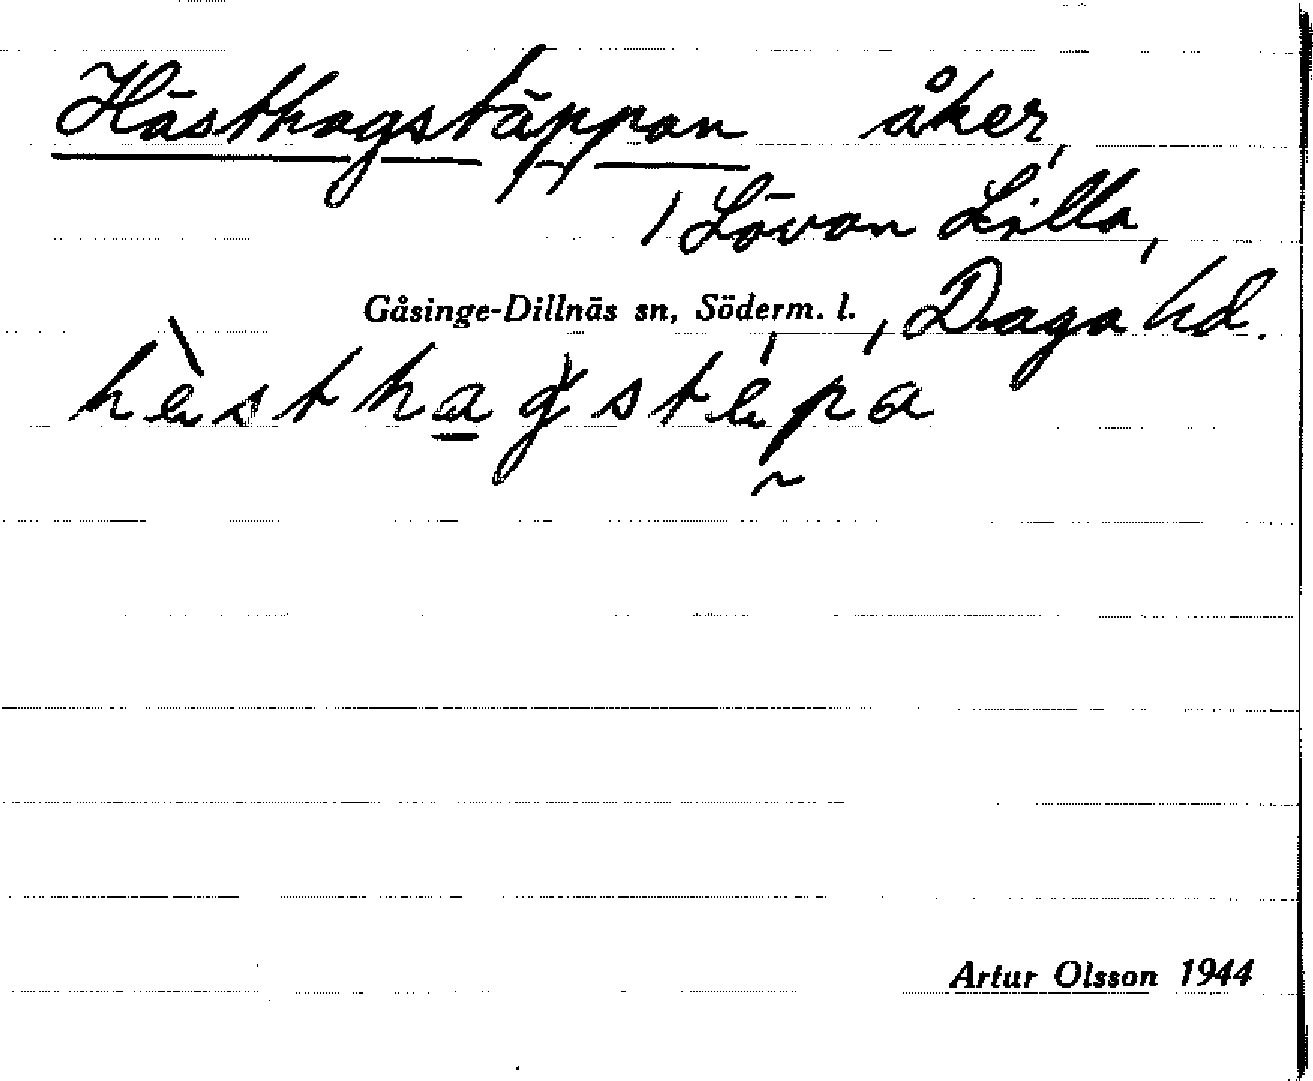 Hästhagstäppan åker,
/ Lövan Lilla,
Gåsinge-Dillnäs sn, Söderm. l., Daga hd.
hàsthagstäpa
Artur Olsson 1944